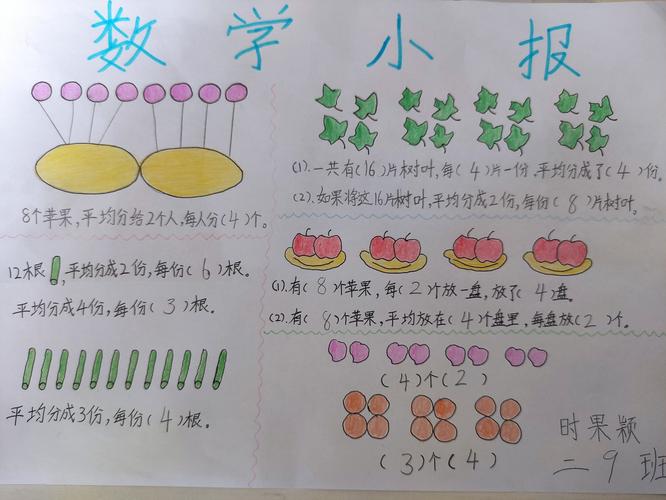 数学小报
8个苹果,平均分给2个人,每人分(4)个。
12根,平均分成2份,每份(6)根。
平均分成4份,每份(3)根。
平均分成3份,每份(4)根。
(1).一共有(16)片树叶,每(4)片一份,平均分成了(4)份。
(2).如果将这16片树叶,平均分成2份,每份(8)片树叶。
(1).有(8)个苹果,每(2)个放一盘,放了(4)盘。
(2).有(8)个苹果,平均放在(4)个盘里,每盘放(2)个。
(4)个(2)
(3)个(4)
时果颖
二9班